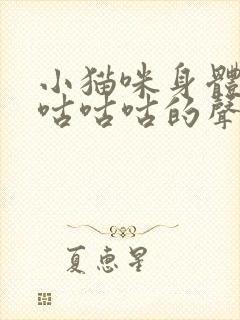 小猫咪身體
咕咕咕的聲
夏惠星